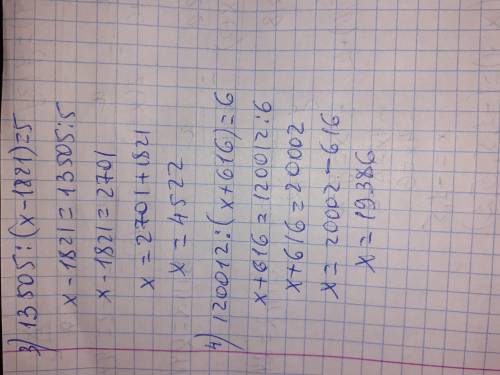 3) 13505:(x-1821)=5
x-1821=13505:5
x-1821=2701
x=2701+1821
x=4522
4) 120012:(x+616)=6
x+616=120012:6
x+616=20002
x=20002-616
x=19386